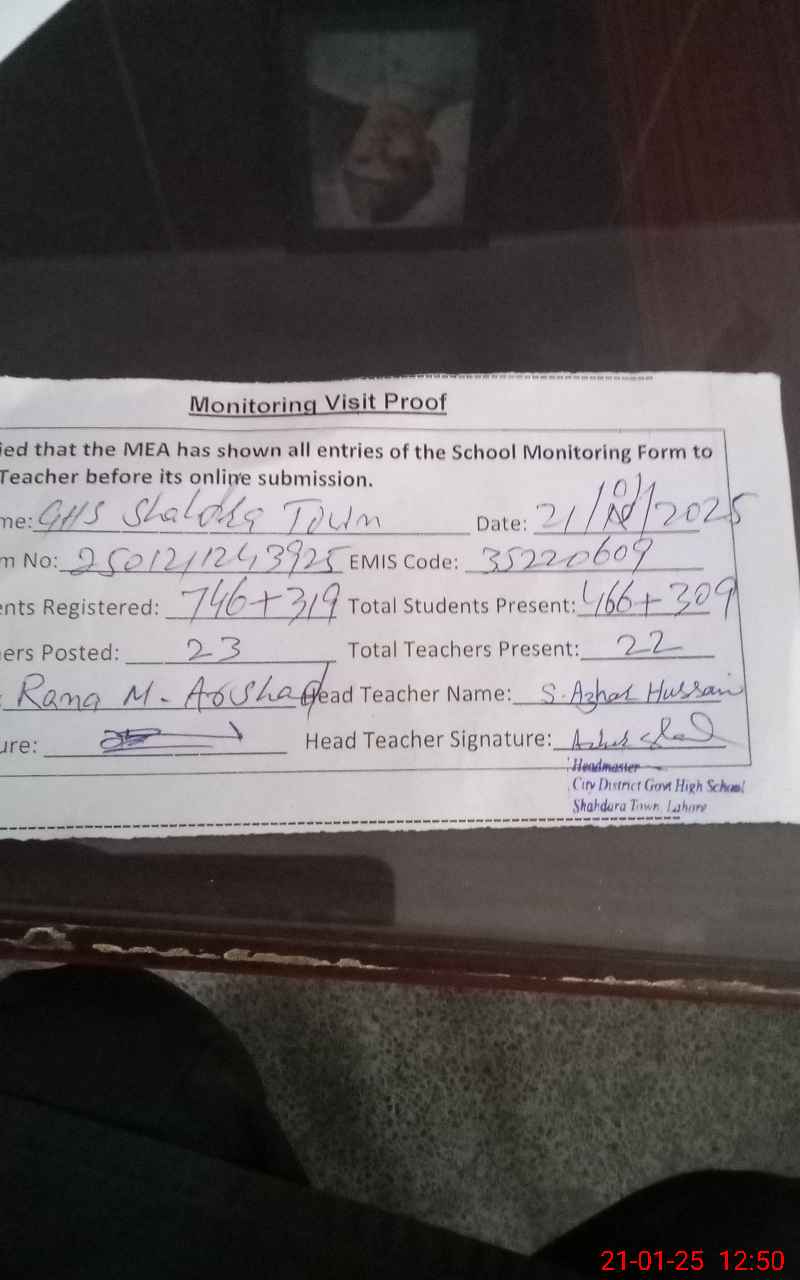 Monitoring Visit Proof
ied that the MEA has shown all entries of the School Monitoring Form to
Teacher before its online submission.
me: GHS Town Date: 21/01/2025
m No: 2501211243925 EMIS Code: 35220609
nts Registered: 746+319 Total Students Present: 466+309
ers Posted: 23 Total Teachers Present: 22
Rana M. Arshad Head Teacher Name: S. Azhar Hussain
ure: Head Teacher Signature:
Headmaster
City District Govt High School
Shahdara Town, Lahore
21-01-25 12:50